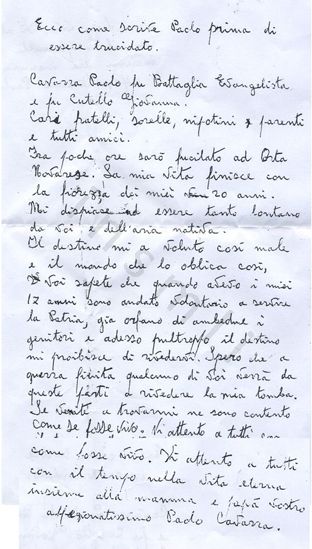 Ecco come scrive Paolo prima di
essere trucidato.
Cavazza Paolo fu Battaglia Evangelista
e fu Cutello Giovanna.
Cari fratelli, sorelle, nipotini, parenti
e tutti amici.
Tra poche ore sarò fucilato ad Orta
Novarese. La mia vita finisce con
la fierezza dei miei 20 anni.
Mi dispiace ad essere tanto lontano
da voi e dell'aria nativa.
Il destino mi a voluto così male
e il mondo che lo oblica così,
Voi sapete che quando avevo i miei
17 anni sono andato volontario a servire
la Patria, già orfano di ambedue i
genitori e adesso pultroppo il destino
mi proibisce di rivedervi. Spero che a
guerra finita qualcuno di voi verrà da
queste parti a rivedere la mia tomba.
Se venite a trovarmi ne sono contento
come se fosse vivo. Vi attento a tutti
come fosse vivo. Vi attento a tutti
con il tempo nella vita eterna
insieme alla mamma e papà vostro
affezionatissimo Paolo Cavazza.